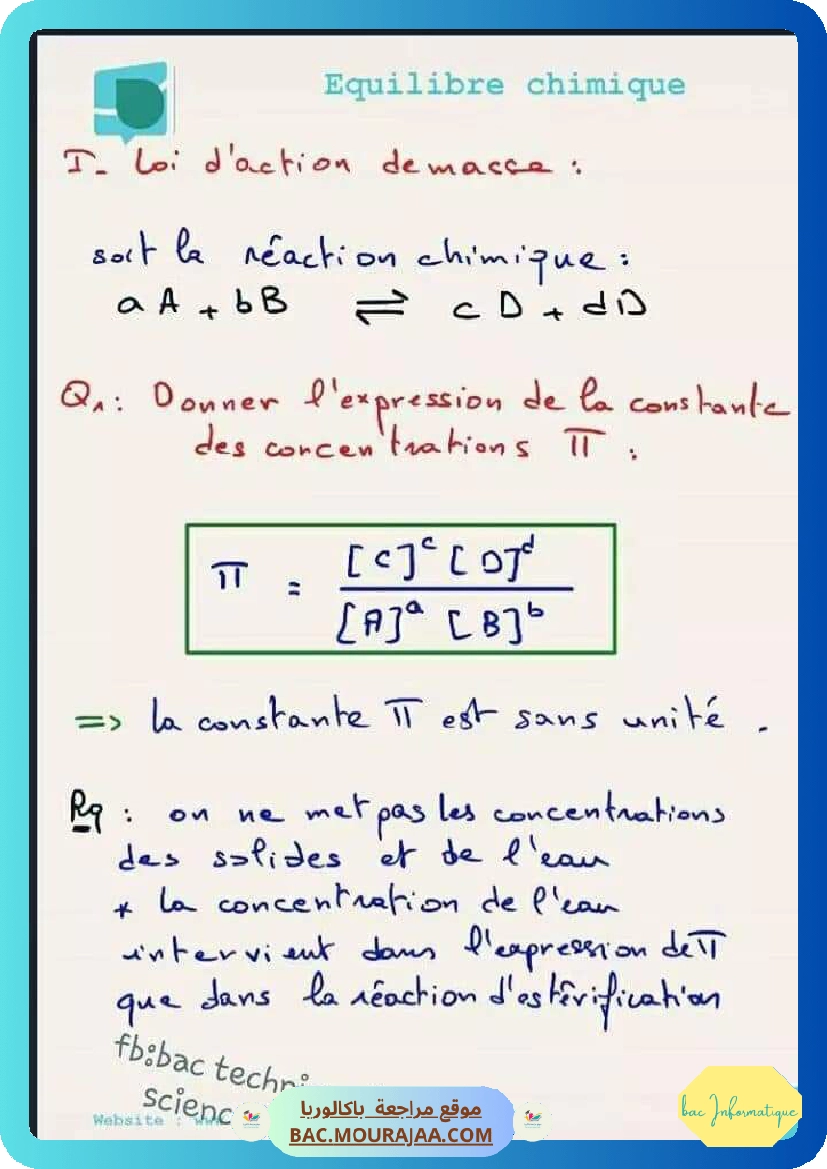 Equilibre chimique
I- Loi d'action de masse :
soit la réaction chimique :
aA + bB ⇌ cD + dD
Q1: Donner l'expression de la constante
des concentrations π :
π = [C]^c [D]^d / [A]^a [B]^b
=> la constante π est sans unité .
Rq : on ne met pas les concentrations
des solides et de l'eau
* la concentration de l'eau
intervient dans l'expression de π
que dans la réaction d'estérification
fb:bac techni
scienc
Website :
موقع مراجعة باكالوريا
BAC.MOURAJAA.COM
bac Informatique